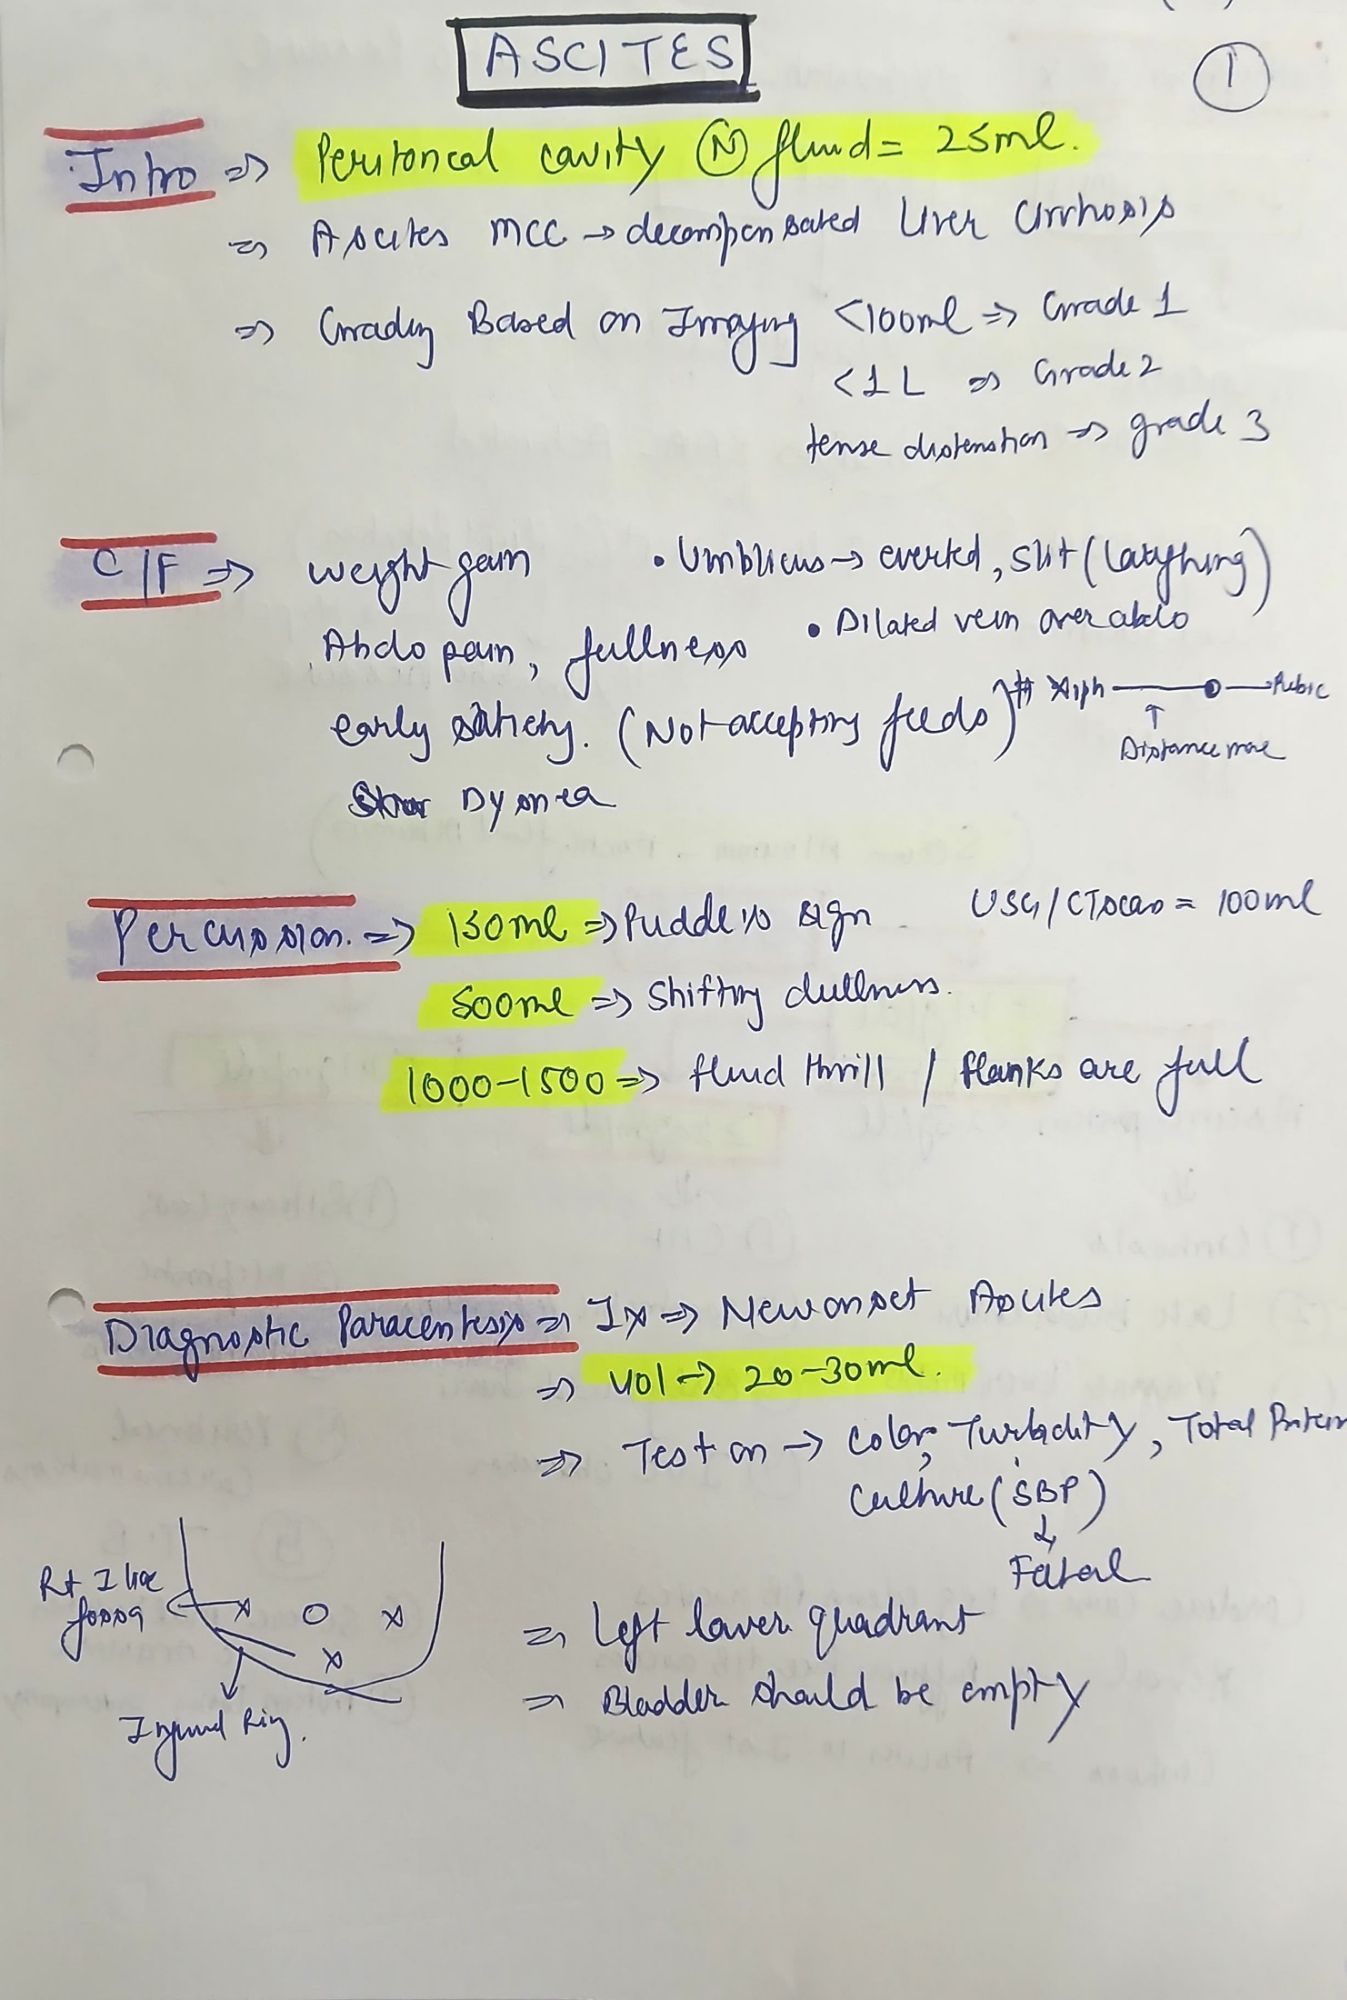 ASCITES
1
Intro ⇒ Peritoneal cavity (N) fluid = 25ml.
⇒ Ascites MCC → decompensated Liver Cirrhosis
⇒ Grading Based on Imaging <100ml ⇒ Grade 1
<1 L ⇒ Grade 2
tense distenstion ⇒ grade 3
C/F ⇒ weight gain
• Umblicus → everted, slit (laughing)
Abdo pain, fullness
• Dilated vein over abdo
early satiety. (Not accepting feeds)
# Xiph Pubic
↑
Distance more
Dysnea
Percussion. ⇒ 150ml ⇒ Puddels sign
USG/CTscan = 100ml
500ml ⇒ Shifting dullness.
1000-1500 ⇒ fluid thrill / flanks are full
Diagnostic Paracentesis ⇒ Ix ⇒ New onset Ascites
⇒ Vol → 20-30ml.
⇒ Test on → Color, Turbidity, Total Protein
Culture (SBP)
↓
Fatal
Rt. Iliac
fossa
⇒ Left lower quadrant
⇒ Bladder should be empty